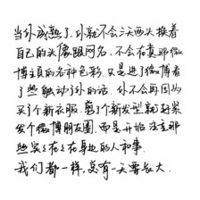 当你成熟了,你就不会三天两头换着
自己的头像跟网名,不会在意那微
博主页的各种色彩,只是进了微博看
了些触动了你的话,你不会再因为
买了个新衣服,剪了个新发型就赶紧
发个微博朋友圈,而是开始注重那
些实实在在身边的人和事.
我们都一样,总有一天要长大.